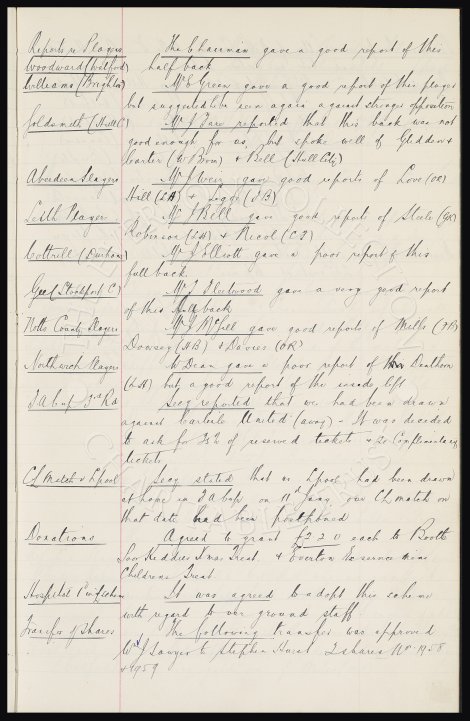 Reports re Players The Chairman gave a good report of this
Woodward (Watford) half back
Williams (Brighton) Mr C Green gave a good report of this player
but suggested he be seen again against stronger opposition
Goldsmith (Hull C) Mr J Fare reported that this back was not
good enough for us, but spoke well of Gledden &
Carter (W Brom) & Bell (Hull City)
Aberdeen Players Mr J Weir gave good reports of Love (OR)
Hall & (IR)
Leith Players Mr J Bell gave good report of Steele (OR)
Robinson (LH) & Nicol (CF)
Cottrell (Durham) Mr J Elliott gave a poor report of this
full back.
Gee (Stockport C) Mr J Fleetwood gave a very good report
of this half back
Notts County Players Mr J McGill gave good reports of Mills (IR)
Dowsey (HB) & Davies (OR)
Northwich Players Mr Dean gave a poor report of
(LH) but a good report of the inside left
F A Cup 3rd Rd Secy reported that we had been drawn
against Carlisle United (away) - It was decided
to ask for of reserved tickets & 20 Complimentary
tickets
CL Match v Lpool Secy stated that as Lpool had been drawn
at home in F A Cup on 11th Jany our CL match on
that date had been postponed
Donations Agreed to grant £2 2 0 each to Bootle
Kiddies Xmas Treat & Everton Ex service mens
Childrens Treat
Hospital It was agreed to adopt this scheme
with regard to our ground staff
Transfer of Shares The following transfer was approved
W J Sawyer to Stephen Hurst 2 shares No 1958
& 1959